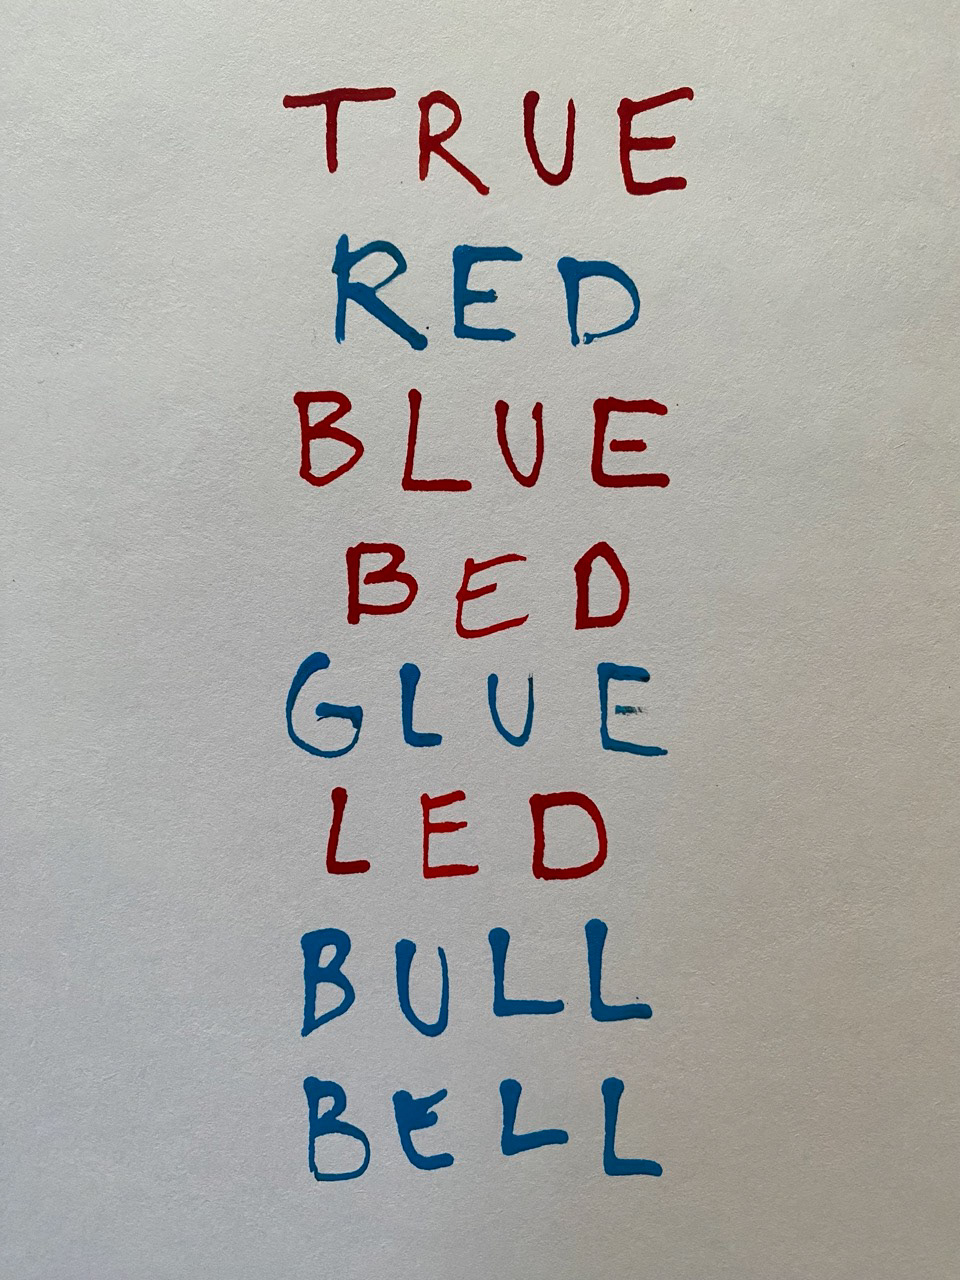 TRUE
RED
BLUE
BED
GLUE
LED
BULL
BELL